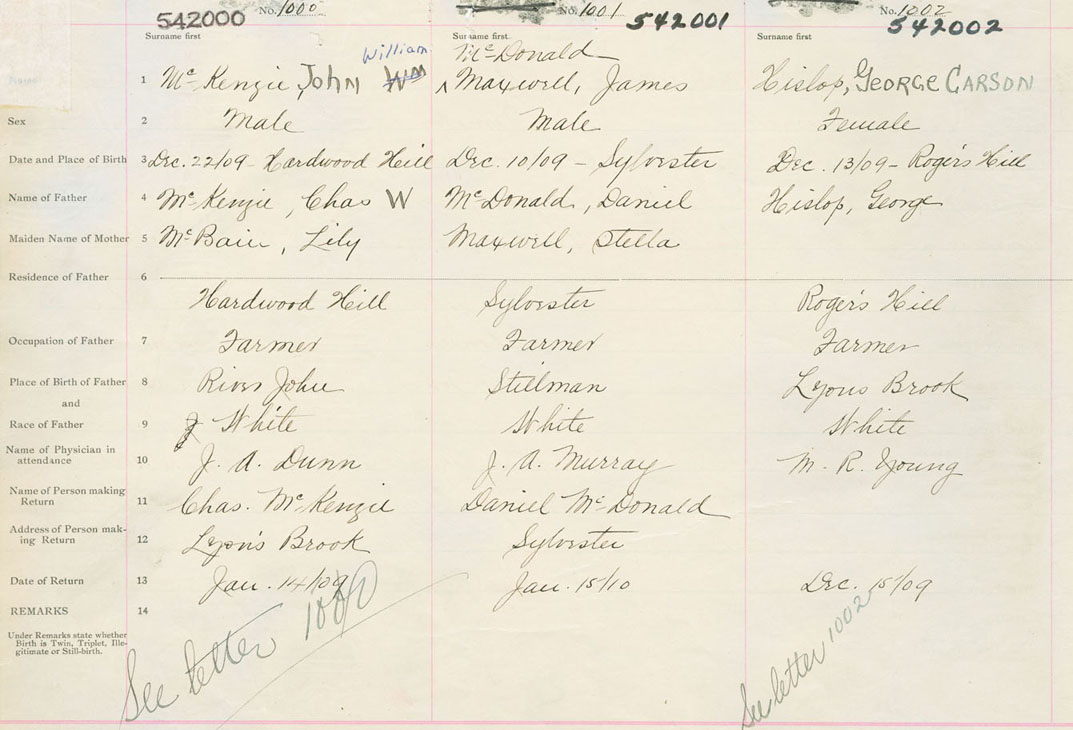 542000 No. 1000 No. 1001 542001 No. 1002 542002
Surname first Surname first. Surname first
William McDonald
1 McKenzie, John Wm Maxwell, James Hislop, GEORGE CARSON
Sex 2 Male Male Female
Date and Place of Birth 3 Dec. 22/09 - Hardwood Hill Dec. 10/09 - Sylvester Dec. 13/09 - Rogers Hill
Name of Father 4 McKenzie, Chas W McDonald, Daniel Hislop, George
Maiden Name of Mother 5 McBain, Lily Maxwell, Stella
Residence of Father 6
Hardwood Hill Sylvester Rogers Hill
Occupation of Father 7 Farmer Farmer Farmer
Place of Birth of Father 8 River John Stillman Lyons Brook
and
Race of Father 9 White White White
Name of Physician in
attendance 10 J. A. Dunn J. A. Murray M. R. Young
Name of Person making
Return 11 Chas. McKenzie Daniel McDonald
Address of Person mak-
ing Return 12 Lyon's Brook Sylvester
Date of Return 13 Jan. 14/09 Jan. 15/10 Dec. 15/09
REMARKS 14
Under Remarks state whether
Birth is Twin, Triplet, Ille-
gitimate or Still-birth.
See letter 1000
See letter 1002